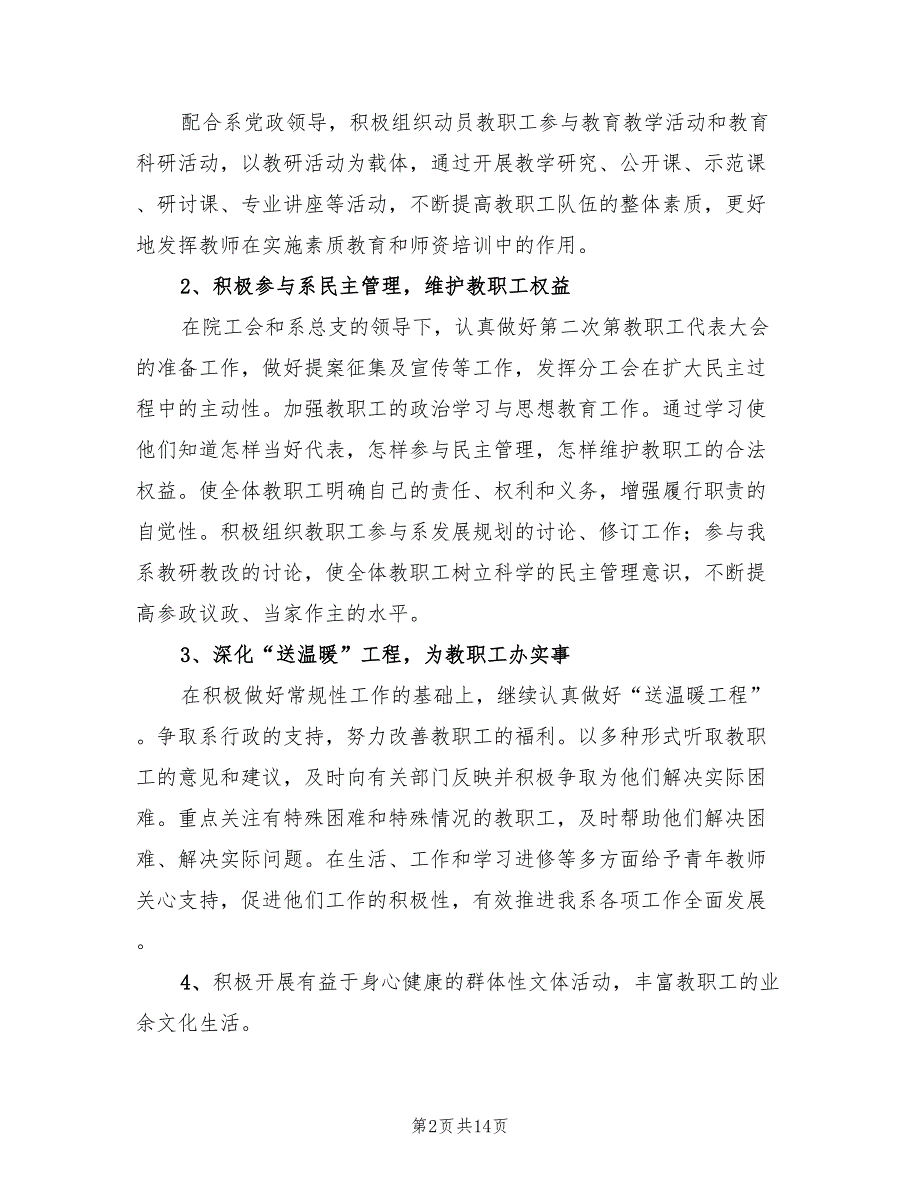 配合系党政领导，积极组织动员教职工参与教育教学活动和教育
科研活动，以教研活动为载体，通过开展教学研究、公开课、示范课
、研讨课、专业讲座等活动，不断提高教职工队伍的整体素质，更好
地发挥教师在实施素质教育和师资培训中的作用。
2、积极参与系民主管理，维护教职工权益
在院工会和系总支的领导下，认真做好第二次第教职工代表大会
的准备工作，做好提案征集及宣传等工作，发挥分工会在扩大民主过
程中的主动性。加强教职工的政治学习与思想教育工作。通过学习使
他们知道怎样当好代表，怎样参与民主管理，怎样维护教职工的合法
权益。使全体教职工明确自己的责任、权利和义务，增强履行职责的
自觉性。积极组织教职工参与系发展规划的讨论、修订工作；参与我
系教研教改的讨论，使全体教职工树立科学的民主管理意识，不断提
高参政议政、当家作主的水平。
3、深化“送温暖”工程，为教职工办实事
在积极做好常规性工作的基础上，继续认真做好“送温暖工程”
。争取系行政的支持，努力改善教职工的福利。以多种形式听取教职
工的意见和建议，及时向有关部门反映并积极争取为他们解决实际困
难。重点关注有特殊困难和特殊情况的教职工，及时帮助他们解决困
难、解决实际问题。在生活、工作和学习进修等多方面给予青年教师
关心支持，促进他们工作的积极性，有效推进我系各项工作全面发展
。
4、积极开展有益于身心健康的群体性文体活动，丰富教职工的业
余文化生活。
第2页共14页